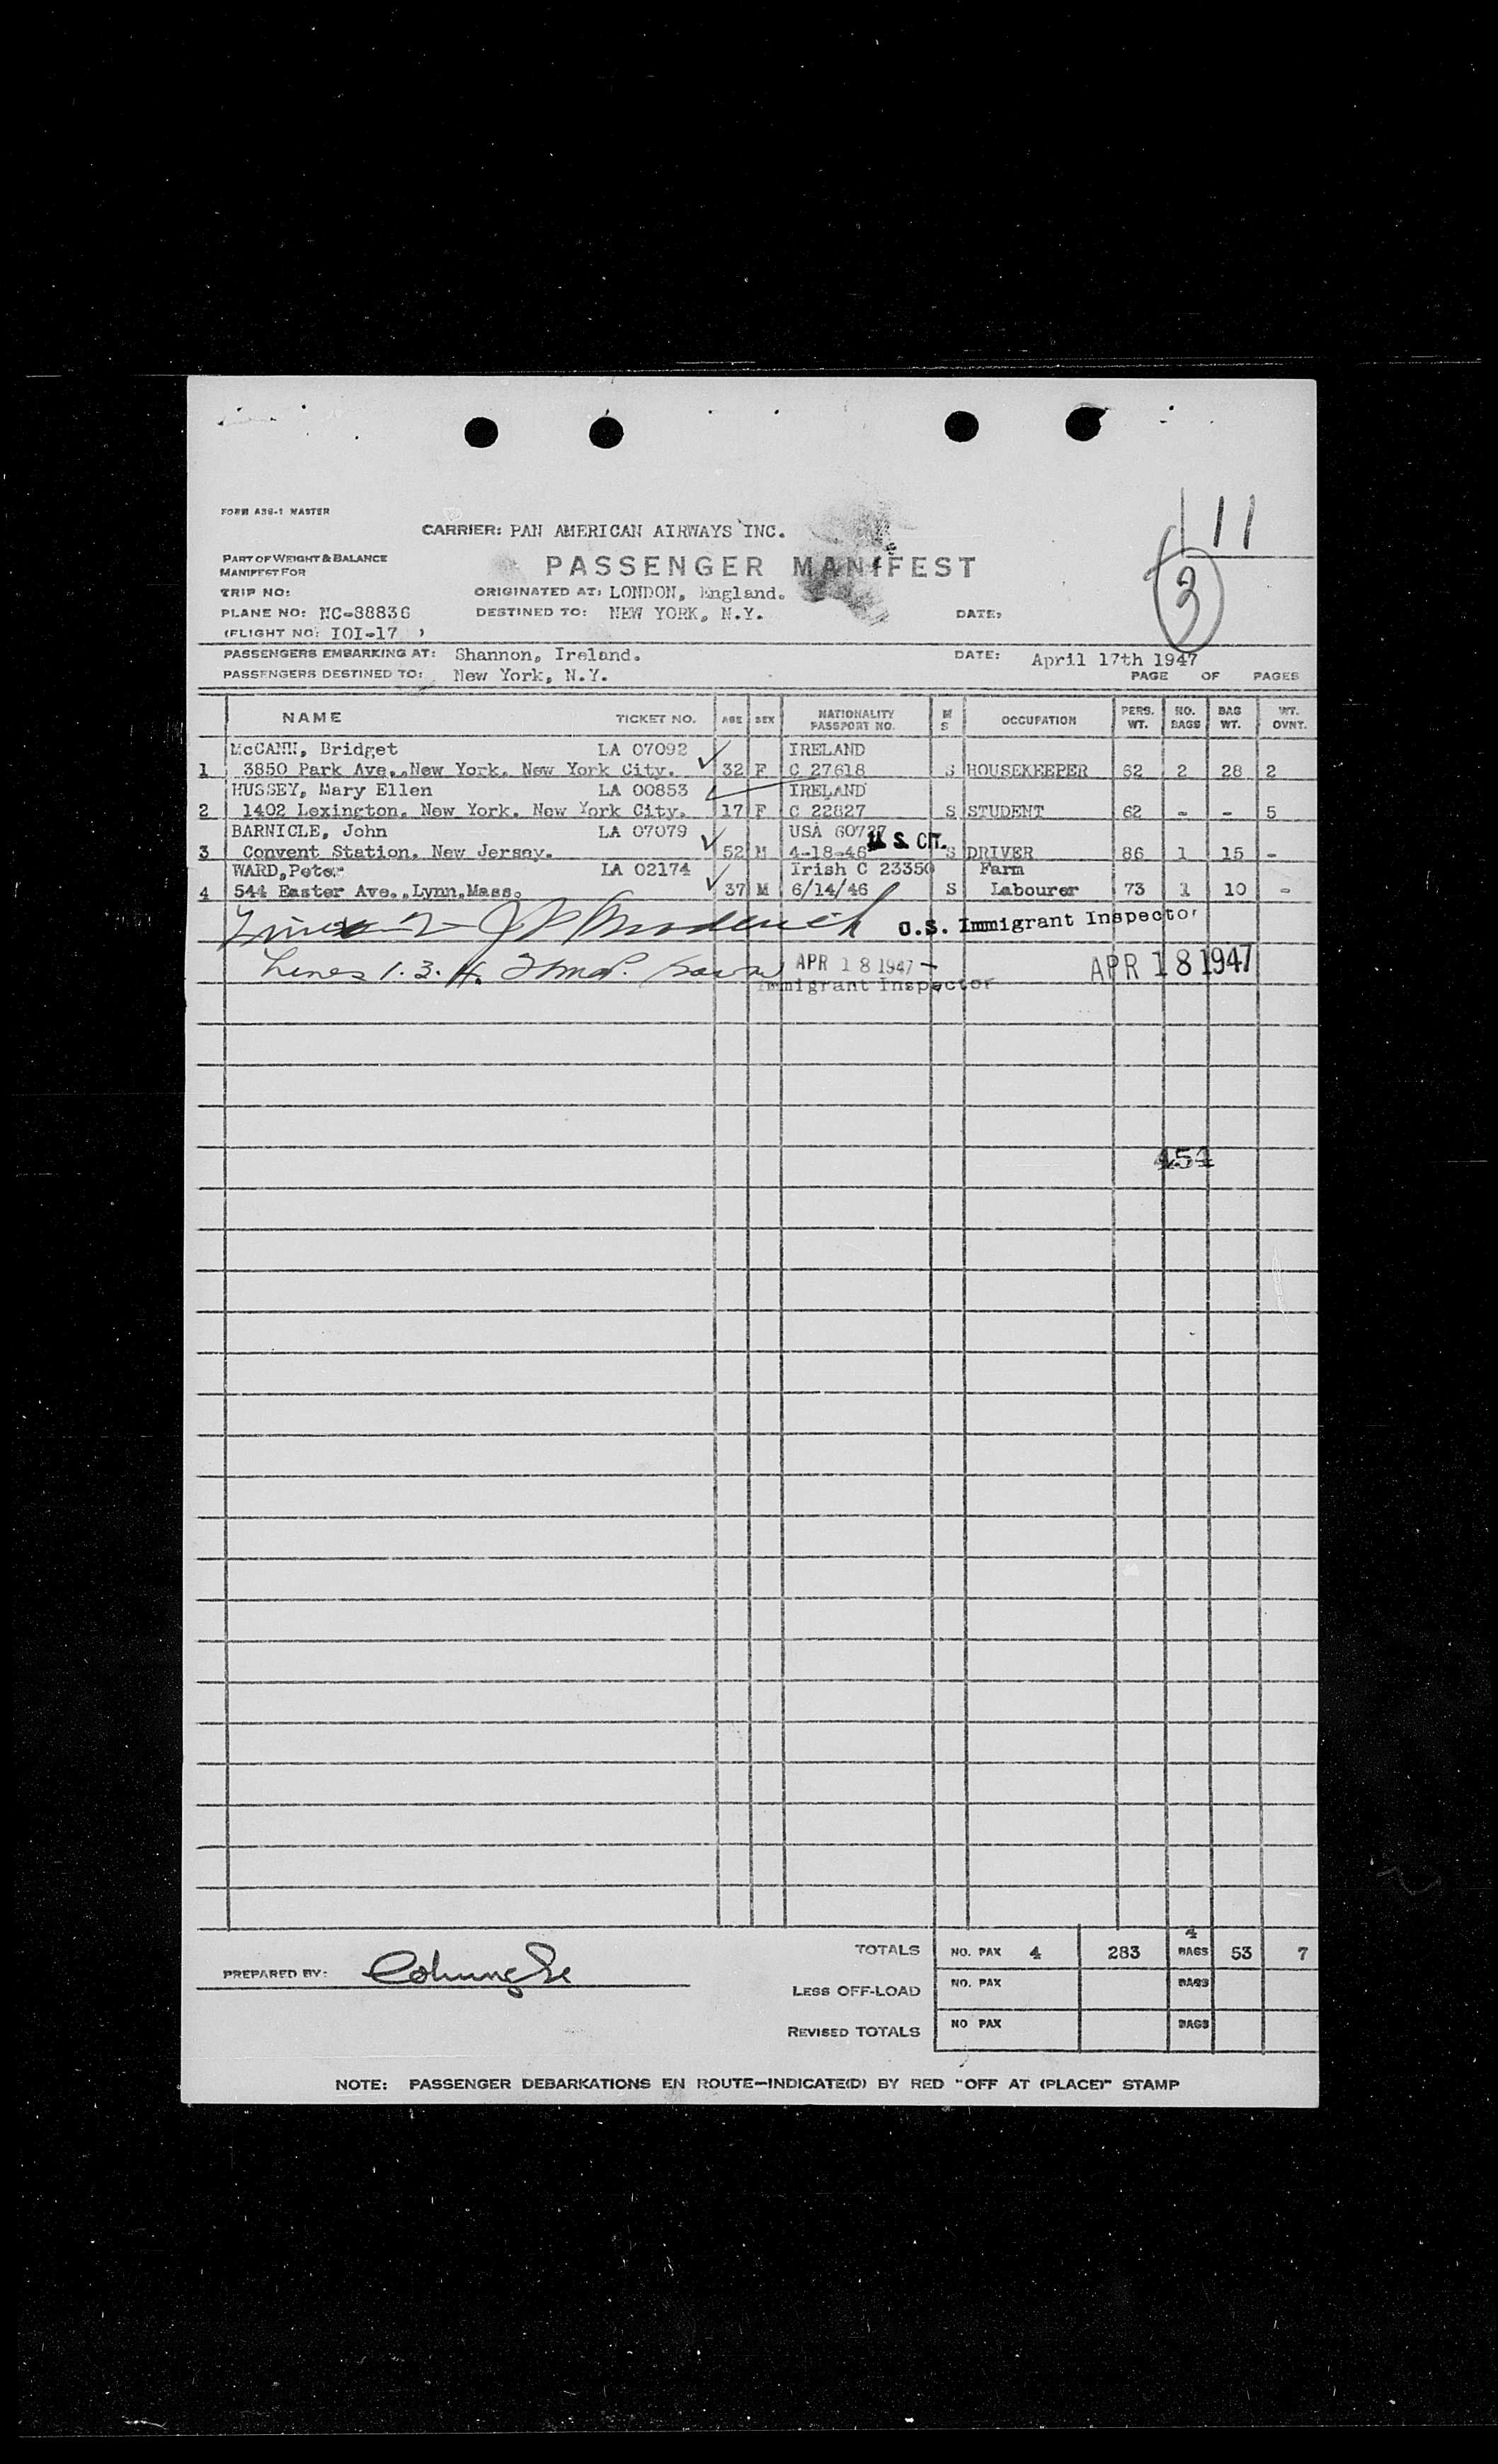 FORM ASS-1 MASTER
11
CARRIER: PAN AMERICAN AIRWAYS INC.
PART OF WEIGHT & BALANCE
MANIFEST FOR
PASSENGER MANIFEST
3
TRIP NO:
ORIGINATED AT: LONDON, England.
PLANE NO: NC-88836
DESTINED TO: NEW YORK, N.Y.
DATE:
(FLIGHT NO: IOI-17 )
PASSENGERS EMBARKING AT: Shannon, Ireland.
DATE: April 17th 1947
PASSENGERS DESTINED TO: New York, N.Y.
PAGE OF PAGES
NAME TICKET NO. AGE SEX NATIONALITY PASSPORT NO. M S OCCUPATION PERS. WT. NO. BAGS BAG WT. WT. OVNT.
McCANN, Bridget LA 07092 IRELAND
1 3850 Park Ave.,New York. New York City. 32 F C 27618 S HOUSEKEEPER 62 2 28 2
HUSSEY, Mary Ellen LA 00853 IRELAND
2 1402 Lexington. New York. New York City. 17 F C 22827 S STUDENT 62 - - 5
BARNICLE, John LA 07079 USA 60727
3 Convent Station. New Jersey. 52 M 4-18-46 U S. CIT. S DRIVER 86 1 15 -
WARD,Peter LA 02174 Irish C 23350 Farm
4 544 Easter Ave.,Lynn,Mass. 37 M 6/14/46 S Labourer 73 1 10 -
U.S. Immigrant Inspector
Lines 1. 3. 4. APR 18 1947 APR 18 1947
Immigrant Inspector
454
4
TOTALS NO. PAX 4 283 BAGS 53 7
PREPARED BY:
LESS OFF-LOAD NO. PAX BAGS
REVISED TOTALS NO PAX BAGS
NOTE: PASSENGER DEBARKATIONS EN ROUTE—INDICATE(D) BY RED "OFF AT (PLACE)" STAMP